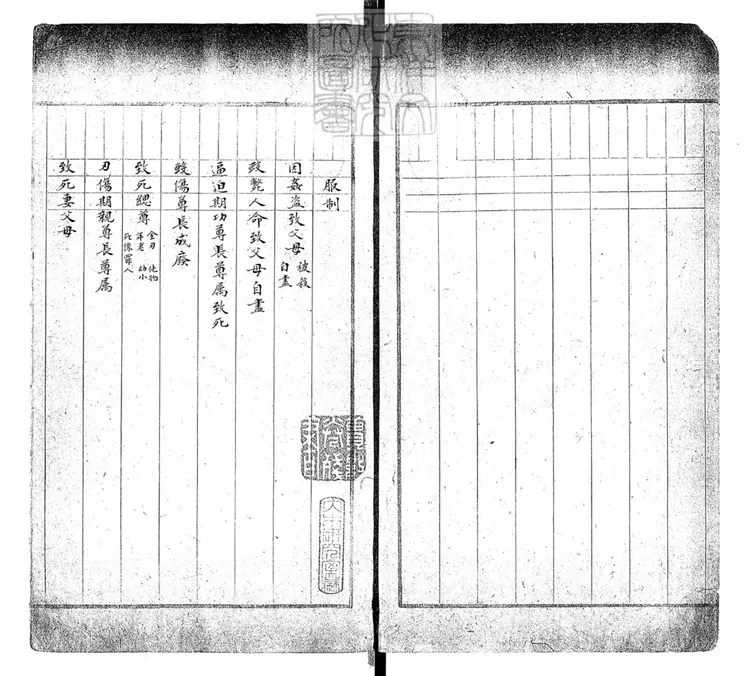 服制
因姦盜致父母 被殺 自盡
致斃人命致父母自盡
逼迫期功尊長尊屬致死
毆傷尊長成廢
致死緦尊 金刃 他物 年老 幼小 死係罪人
刃傷期親尊長尊屬
致死妻父母